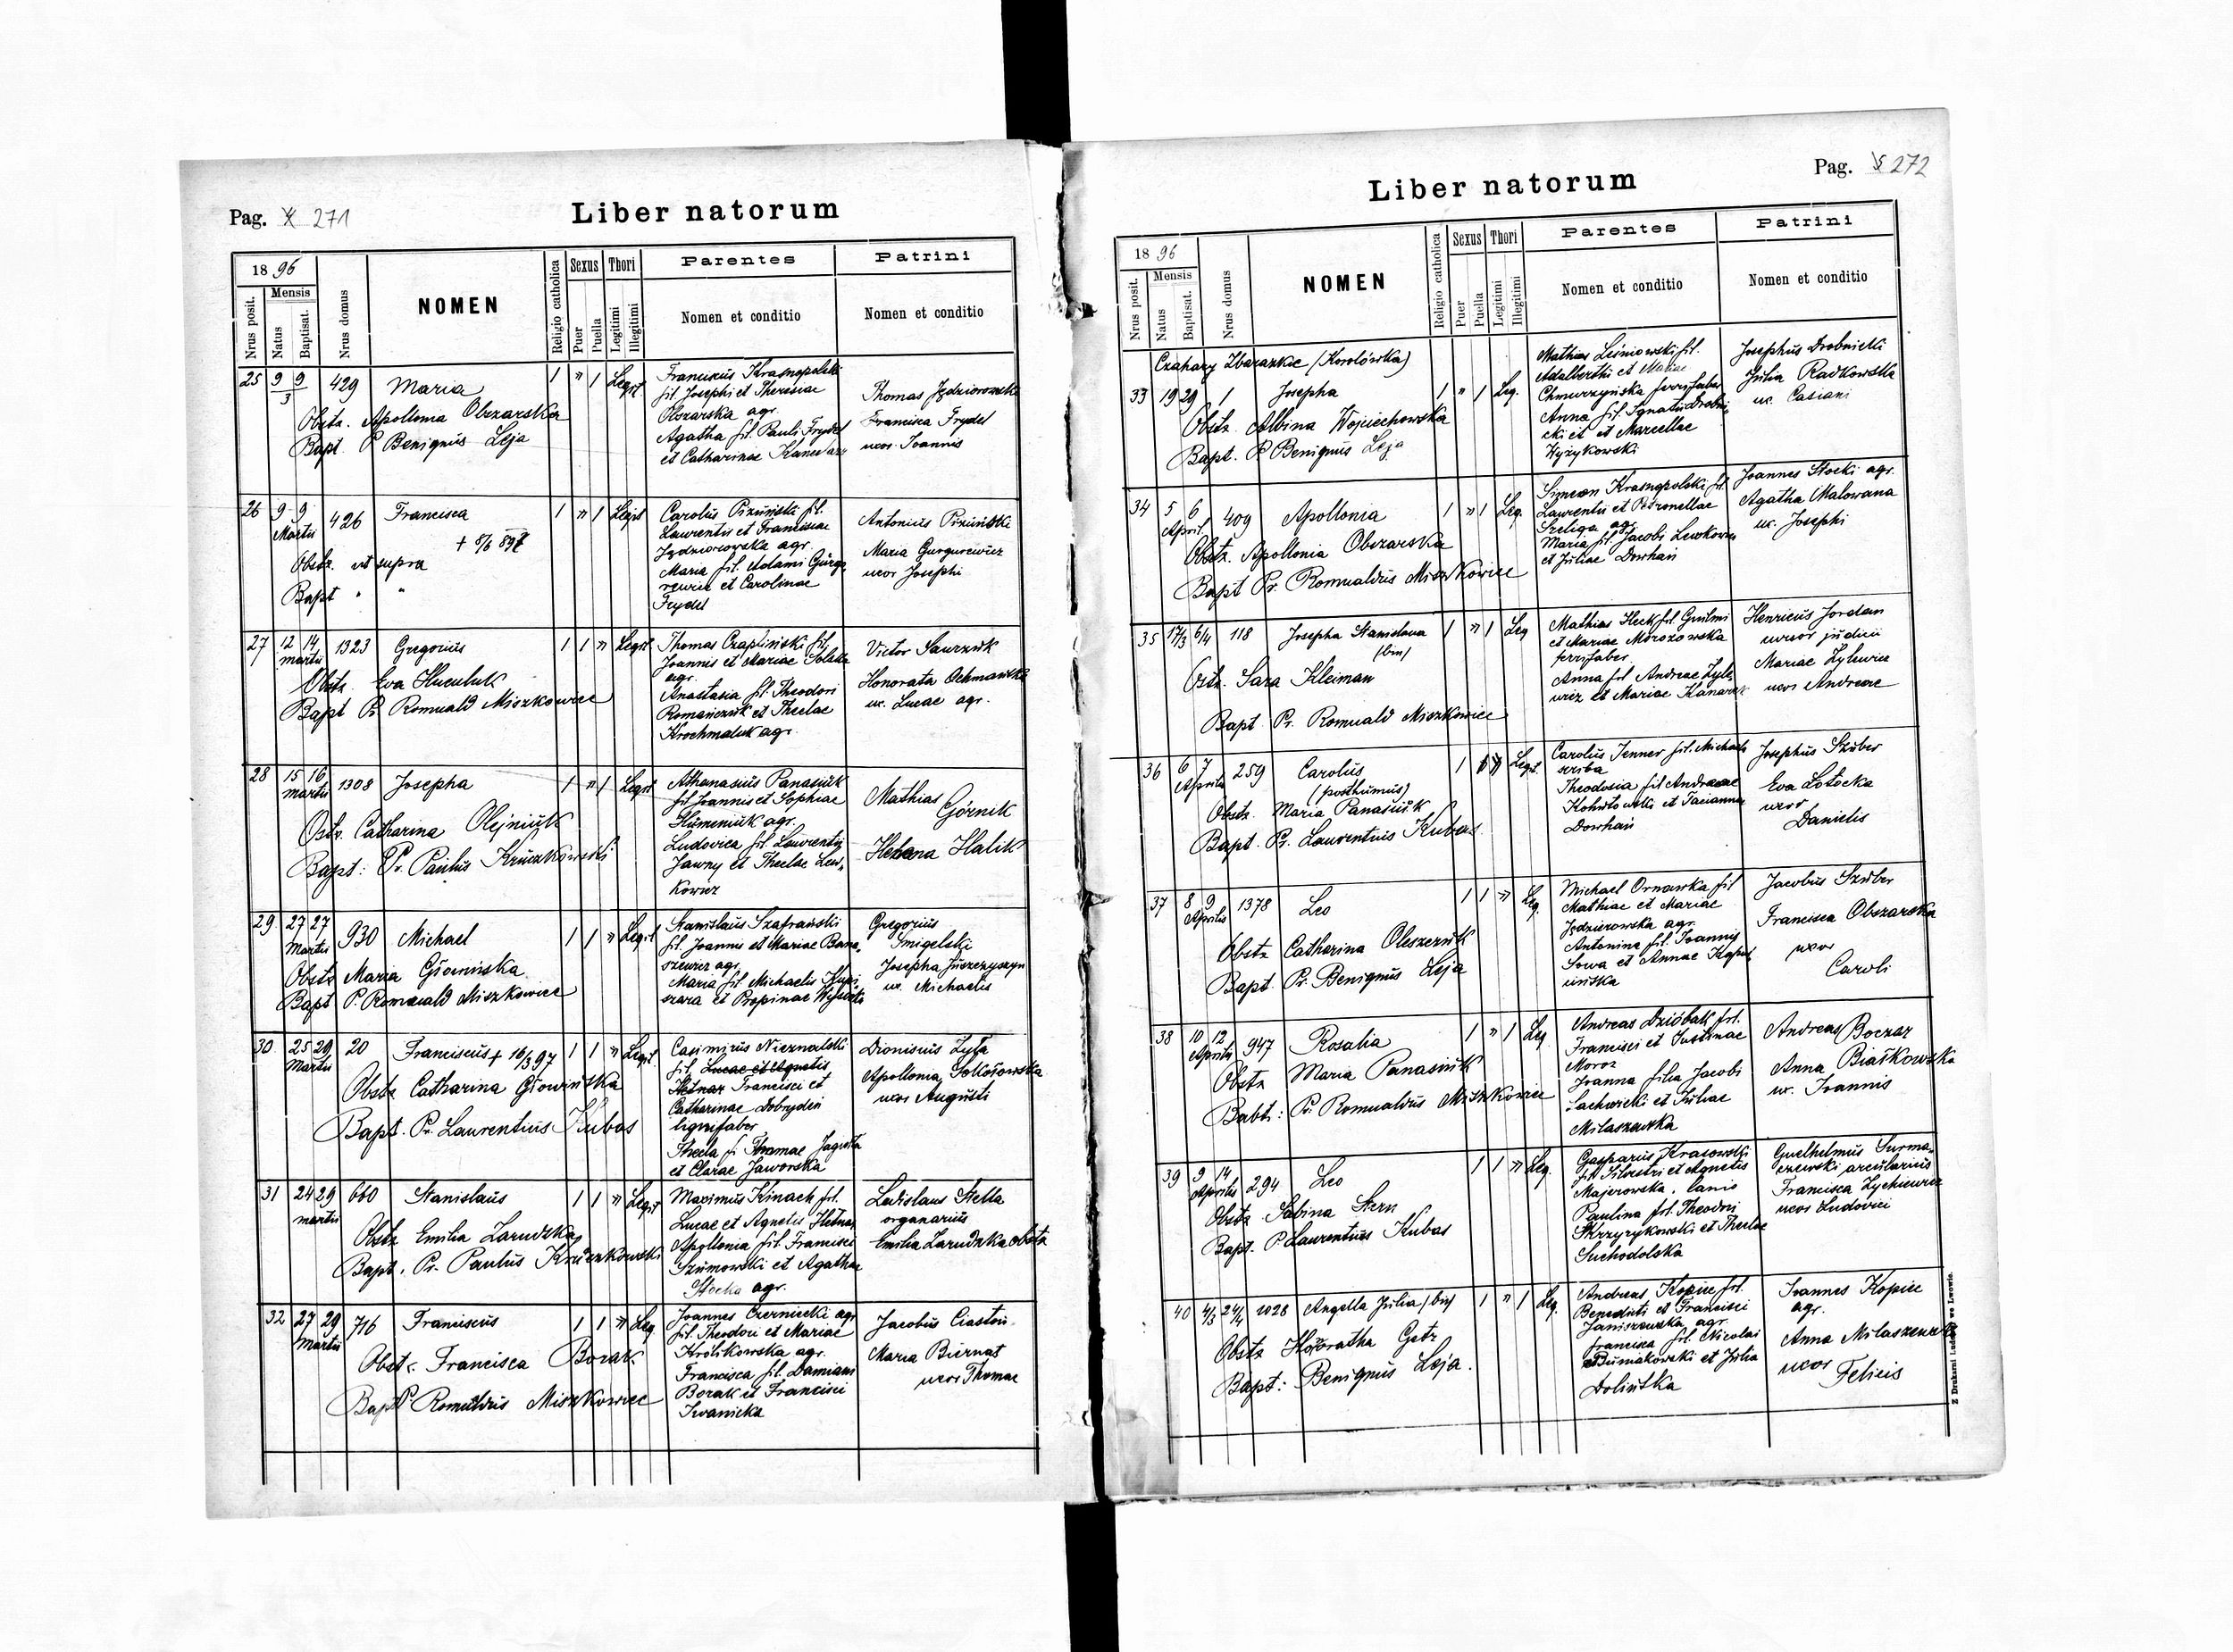 Pag. 271
Liber natorum
1896
Nrus posit.
Mensis
Natus
Baptisat.
Nrus domus
NOMEN
Religio catholica
Sexus
Puer
Puella
Thori
Legitimi
Illegitimi
Parentes
Nomen et conditio
Patrini
Nomen et conditio
25 9 9/3 429 Maria 1 " 1 Legit
Obstz. Apollonia Obzarska
Bapt P Benignus Leja
Franciscus Krasnopolski
fil. Josephi et Theresiae
Obzarska agr.
Agatha fil. Pauli Frydel
et Catharinae
Thomas Jędziorowski
Francisca Frydel
uxor Joannis
26 9 9 Martii 426 Francisca 1 " 1 Legit
Obstz. ut supra
Bapt " "
Carolus Piziński fil.
Laurentii et Franciscae
Jędziorowska agr.
Maria fil. Adami Gurgu
rewicz et Carolinae
Frydel
Antonius Piziński
Maria Gurgurewicz
uxor Josephi
27 12 14 martii 1323 Gregorius 1 1 " Legit
Obstz. Eva Huculuk
Bapt Pr Romuald Miszkowiec
Thomas Czapliński fil.
Joannis et Mariae
agr.
Anastasia fil. Theodori
Romańczuk et Theclae
Krochmaluk agr.
Victor Sawrzuk
Honorata
ux. Lucae agr.
28 15 16 martii 1308 Josepha 1 " 1 Legit
Ostr. Catharina Olejniuk
Bapt: Pr. Paulus Kruczkowski
Athanasius Panasiuk
fil Joannis et Sophiae
Klimeniuk agr.
Ludovica fil. Laurentii
Jawny et Theclae Lew„
kowicz
Mathias
Górnik
Helena Halik
29 27 27 Martii 930 Michael 1 1 " Legit
Obstz Maria Głowińska
Bapt P. Romuald Miszkowiec
Stanislaus Szafrański
fil. Joannis et Mariae Bana„
szewicz agr.
Maria fil. Michaelis
et Propinae
Gregorius
Smigelski
Josepha Juszczyszyn
ux. Michaelis
30 25 29 Martii 20 Franciscus + 16/3 97 1 1 " Legit
Obstz Catharina Głowińska
Bapt. Pr. Laurentius Kubas
Casimirus Nieznalski
fil. Lucae et Agnetis
Hetnar Francisci et
Catharinae Dobrydeń
lignifaber
Thecla f. Thomae Jagusta
et Clarae Jaworska
Dionisius Zyła
Apollonia Sokołowska
uxor Augusti
31 24 29 martii 660 Stanislaus 1 1 " Legit
Obstz Emilia Zarudzka
Bapt. Pr. Paulus Kruczkowski
Maximus Kinach fil.
Lucae et Agnetis Hetnar
Apollonia fil. Francisci
Szumowski et Agathae
Stocka agr.
Ladislaus Stella
organarius
Emilia Zarudzka obstz
32 27 29 Martii 716 Franciscus 1 1 " Leg
Obstr. Francisca Borak
Bapt P Romuldus Miszkowiec
Joannes Czerniecki agr
fil. Theodori et Mariae
Królikowska agr.
Francisca fil. Damiani
Borak et Francisci
Iwanicka
Jacobus Ciastoń
Maria Biernat
uxor Thomae
Pag. 272
Liber natorum
1896
Nrus posit.
Mensis
Natus
Baptisat.
Nrus domus
NOMEN
Religio catholica
Sexus
Puer
Puella
Thori
Legitimi
Illegitimi
Parentes
Nomen et conditio
Patrini
Nomen et conditio
Czahary Zbarazkie (Korolówka)
33 19 29 1 Josepha 1 " 1 Leg.
Obstz Albina Wojciechowska
Bapt. P Benignus Leja
Mathias Leśniowski fil.
Adalberthi et Mariae
Chmurzyńska ferrifaber
Anna fil. Ignatii Drobni
cki et Marcellae
Wyżykowski
Josephus Drobnicki
Julia Radkowska
ux. Casiani
34 5 6 April 409 Apollonia 1 " 1 Leg.
Obstz. Apollonia Obzarska
Bapt Pr. Romualdus Miszkowiec
Simeon Krasnopolski fil.
Laurentii et Petronellae
Szeliga agr.
Maria fil. Jacobi Lewkowicz
et Juliae Dowhań
Joannes Stocki agr.
Agatha Malowana
ux. Josephi
35 17/3 6/4 118 Josepha Stanislava (bin) 1 " 1 Leg
Ostz. Sara Kleiman
Bapt. Pr. Romuald Miszkowiec
Mathias Heck fil Guilmi
et Mariae Morozowska
ferrifaber
Anna fil Andreae Zyle
wicz et Mariae Kanarek
Henricus Jordan
judicii
Mariae Zylewicz
uxor Andreae
36 6 7 Aprilis 259 Carolus (posthumus) 1 " Legt.
Obstz. Maria Panasiuk
Bapt. Pr. Laurentius Kubas
Carolus Jenner fil. Michaelis
scriba
Theodosia fil Andreae
et Tacianna
Dowhań
Josephus Szuber
Eva Lotocka
uxor
Danielis
37 8 9 Aprilis 1378 Leo 1 1 " Leg.
Obstz Catharina Oleszczuk
Bapt. Pr. Benignus Leja
Michael Ornawka fil
Mathiae et Mariae
Jędziorowska agr.
Antonina fil. Joannis
Sowa et Annae Kapuś
cińska
Jacobus Szuber
Francisca Obszarska
uxor
Caroli
38 10 12 Aprilis 947 Rosalia 1 " 1 Leg
Obstz Maria Panasiuk
Babt: Pr. Romualdus Miszkowiec
Andreas Dzióbak fil.
Francisci et Justinae
Moroz
Joanna filia Jacobi
Lachwicki et Juliae
Milaszewska
Andreas Boczar
Anna Białkowska
ux. Joannis
39 9 14 Aprilis 294 Leo 1 1 " Leg.
Obstz. Sabina Stern
Bapt. P Laurentius Kubas
Gasparus Krasowski
fil. Silvestri et Agnetis
Majerowska. lanio
Paulina fil. Theodori
Skrzyzykowski et Theclae
Suchodolska
Guelhelmus Surma„
czewski arcularius
Francisca Zychiewicz
uxor Ludovici
40 4/3 24/4 1028 Angella Julia (bin) 1 " 1 Leg.
Obstz Honoratha Getz
Bapt: Benignus Leja.
Andreas Kopiec fil.
Benedicti et Francisci
Janiszewska agr.
francisca fil. Nicolai
Bumakowski et Julia
Dolińska
Joannes Kopiec
agr.
Anna Milaszewska
uxor
Felicis
Z Drukarni Ludowej we Lwowie.